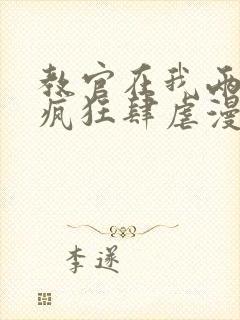 教官在我两
疯狂肆虐漫
李遂